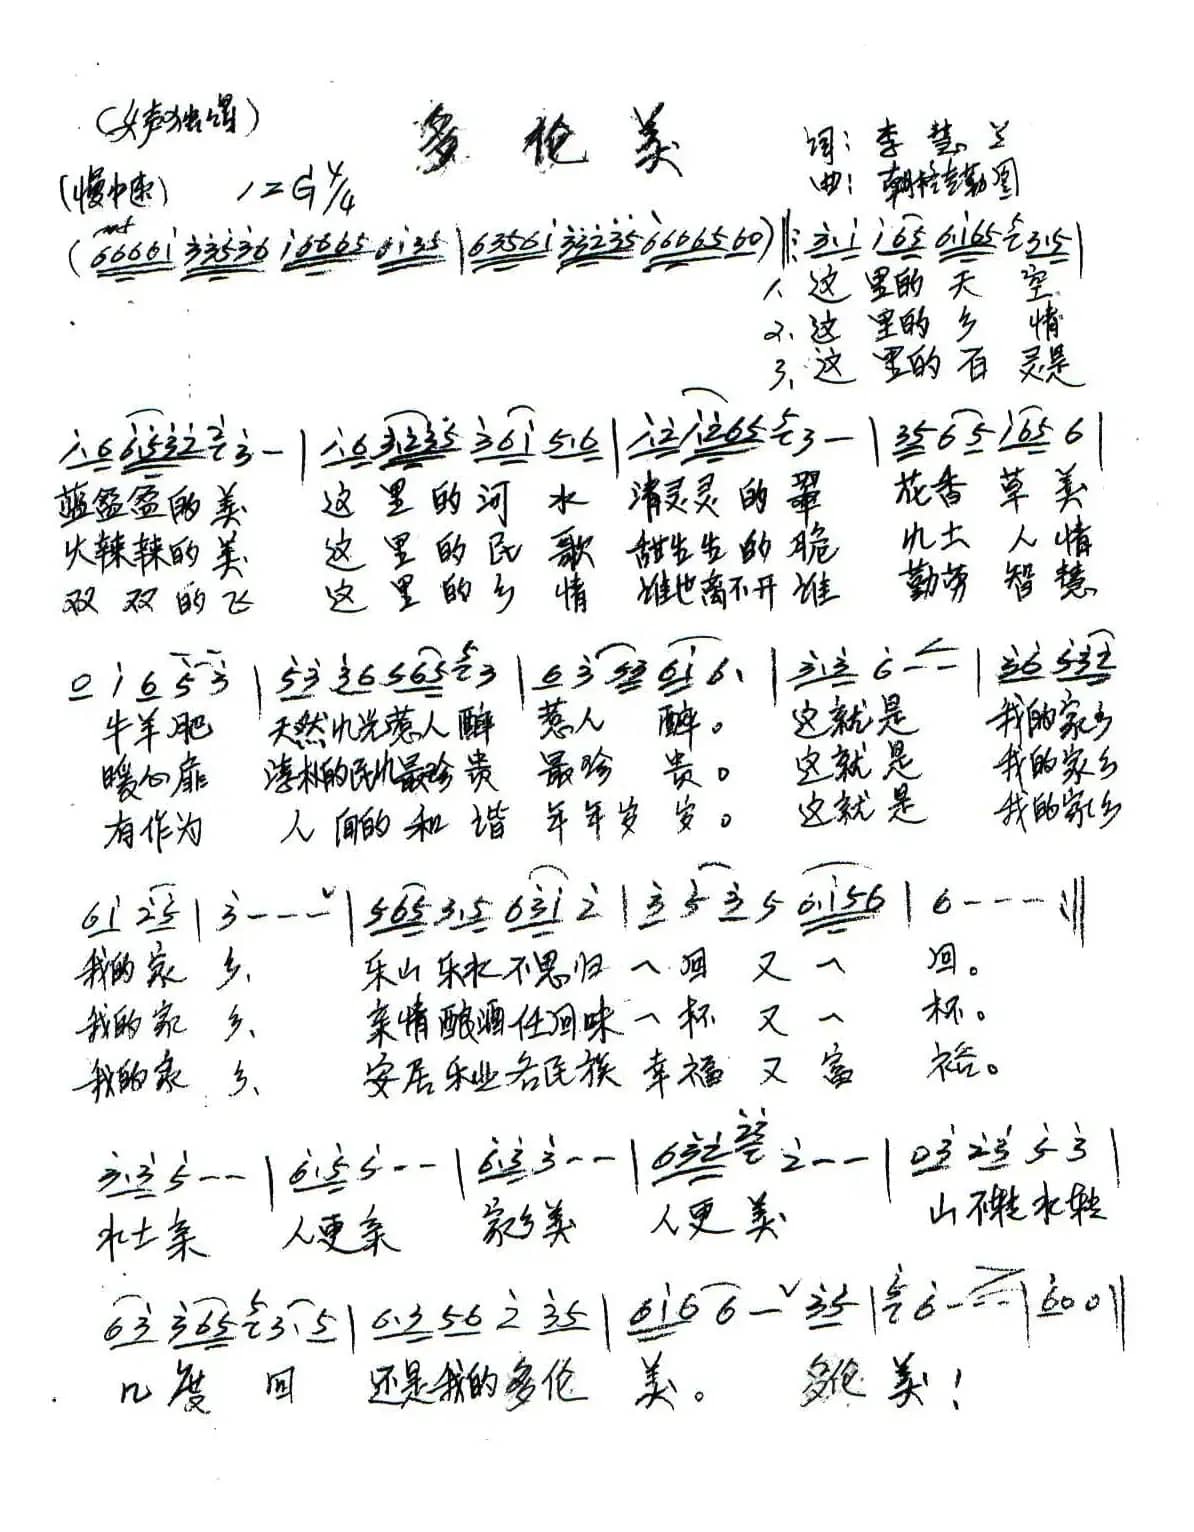 (女声独唱)
多伦美
词：李慧兰
曲：朝格吉勒图
(慢中速) 1=G 4/4
mf
(66661 33536 16665 6135 | 63561 33235 6666560) ‖: 3.1 165 6165 3.5 |
1、这里的天空
2、这里的乡情
3、这里的百灵是
1.6 61532 3- | 1.6 3235 361 5.6 | 12 1265 3- | 35 65 165 6 |
蓝盈盈的美 这里的河水 清灵灵的翠 花香草美
火辣辣的美 这里的民歌 甜生生的脆 风土人情
双双的飞 这里的乡情 谁也离不开谁 勤劳智慧
0 1 6 5 3 | 53 36 5653 | 63 53 61 6. | 3.3 6-- | 36 532
牛羊肥 天然风光惹人醉 惹人醉。 这就是 我的家乡
暖心扉 淳朴的民风最珍贵 最珍贵。 这就是 我的家乡
有作为 人间的和谐 年年岁岁。 这就是 我的家乡
61 25 | 3--- | 565 3.5 631 2 | 3 5 3 5 6156 | 6--- :‖
我的家乡、 乐山乐水不思归 一回又一回。
我的家乡、 亲情酿酒任回味 一杯又一杯。
我的家乡、 安居乐业各民族 幸福又富裕。
3.3 5-- | 6.5 5-- | 6.3 3-- | 632 2-- | 03 23 5 3 |
水土亲 人更亲 家乡美 人更美 山不转水转
63 365 3.5 | 6.3 56 2 35 | 616 6- 35 | 6--- | 600 ‖
几度回 还是我的多伦美。 多伦美！